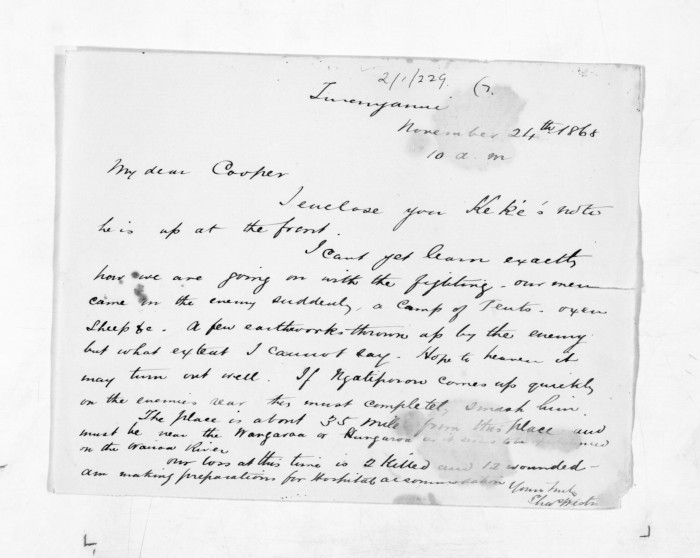 2/1/229. G.
Turanganui
November 24th 1868
10 a.m
My dear Cooper
I enclose you Keké's note
he is up at the front.
I cant yet learn exactly
how we are going on with the fighting - our men
came on the enemy suddenly, a camp of Tents - oxen
Sheep &c. A few earthworks thrown up by the enemy
but what extent I cannot say. Hope to heaven it
may turn out well. If Ngatiporou comes up quickly
on the enemies rear this must completely smash him.
The place is about 35 miles from this place and
must be near the Wangaroa or Hungaroa as it
on the Wairoa River
our loss at this time is 2 Killed and 12 wounded -
am making preparations for Hospital accommodation
Yours truly